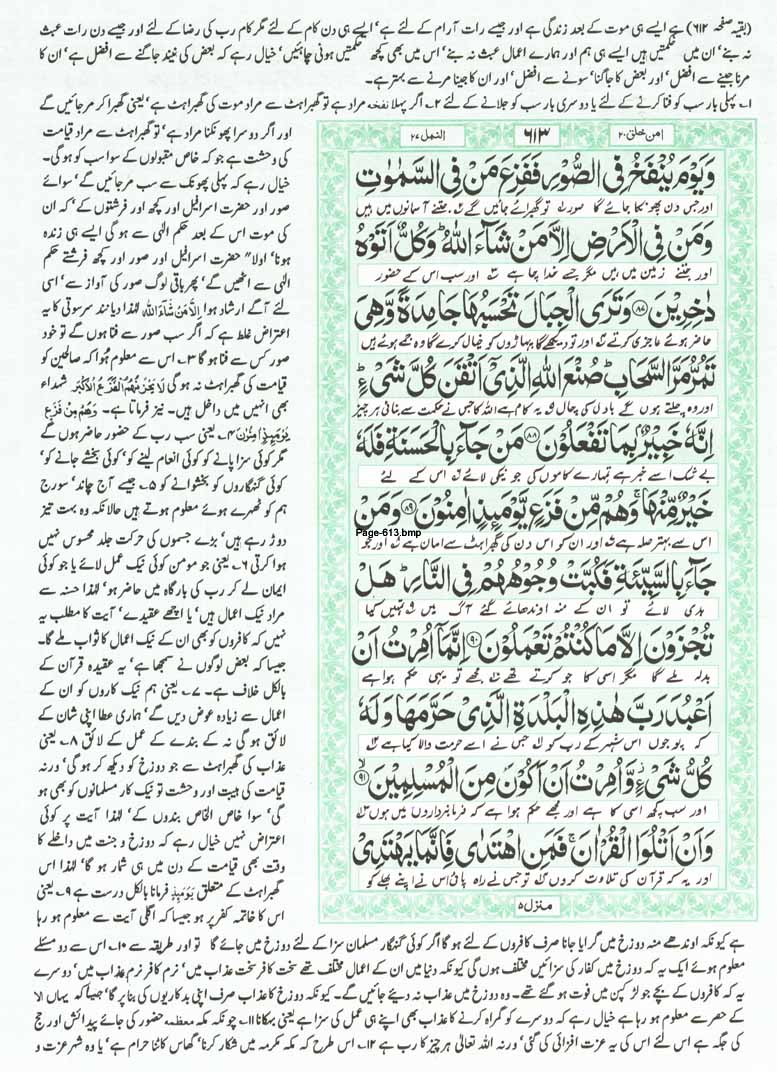 (بقیہ صفحہ ۶۱۲) ہے ایسے ہی موت کے بعد زندگی ہے اور جیسے رات آرام کے لئے ہے' ایسے ہی دن کام کے لئے مگر کام رب کی رضا کے لئے اور جیسے دن رات عبث
نہ بنے' ان میں حکمتیں ہیں ایسے ہی ہم اور ہمارے اعمال عبث نہ بنے' اس میں بھی کچھ حکمتیں ہونی چاہئیں' خیال رہے کہ بعض کی نیند جاگنے سے افضل ہے' ان کا
مرنا جینے سے افضل' اور بعض کا جاگنا' سونے سے افضل' اور ان کا جینا مرنے سے بہتر ہے۔
۱۔ پہلی بار سب کو فنا کرنے کے لئے یا دوسری بار سب کو جلانے کے لئے ۲۔ اگر پہلا نفخہ مراد ہے تو گھبراہٹ سے مراد موت کی گھبراہٹ ہے' یعنی گھبرا کر مر جائیں گے
امن خلق ۲۰
۶۱۳
النمل ۲۷
وَيَوْمَ يُنْفَخُ فِى الصُّوْرِ فَفَزِعَ مَنْ فِى السَّمٰوٰتِ
اور جس دن پھونکا جائے گا صور تو گھبرائے جائیں گے جتنے آسمانوں میں ہیں
وَمَنْ فِى الْاَرْضِ اِلَّا مَنْ شَآءَ اللّٰهُ ؕ وَكُلٌّ اَتَوْهُ
اور جتنے زمین میں ہیں مگر جسے خدا چاہے اور سب اس کے حضور
دٰخِرِيْنَ ﴿۸۷﴾ وَتَرَى الْجِبَالَ تَحْسَبُهَا جَامِدَةً وَّهِىَ
حاضر ہوئے عاجزی کرتے اور تو دیکھے گا پہاڑوں کو خیال کرے گا وہ جمے ہوئے ہیں
تَمُرُّ مَرَّ السَّحَابِ ؕ صُنْعَ اللّٰهِ الَّذِىْۤ اَتْقَنَ كُلَّ شَىْءٍ ؕ
اور وہ چلتے ہوں گے بادل کی چال یہ کام ہے اللہ کا جس نے حکمت سے بنائی ہر چیز
اِنَّهٗ خَبِيْرٌۢ بِمَا تَفْعَلُوْنَ ﴿۸۸﴾ مَنْ جَآءَ بِالْحَسَنَةِ فَلَهٗ
بے شک اسے خبر ہے تمہارے کاموں کی جو نیکی لائے اس کے لئے
خَيْرٌ مِّنْهَا ۚ وَهُمْ مِّنْ فَزَعٍ يَّوْمَئِذٍ اٰمِنُوْنَ ﴿۸۹﴾ وَمَنْ
اس سے بہتر صلہ ہے اور ان کو اس دن کی گھبراہٹ سے امان ہے اور جو
Page-613.bmp
جَآءَ بِالسَّيِّئَةِ فَكُبَّتْ وُجُوْهُهُمْ فِى النَّارِ ؕ هَلْ
بدی لائے تو ان کے منہ اوندھائے گئے آگ میں تمہیں کیا
تُجْزَوْنَ اِلَّا مَا كُنْتُمْ تَعْمَلُوْنَ ﴿۹۰﴾ اِنَّمَاۤ اُمِرْتُ اَنْ
بدلہ ملے گا مگر اسی کا جو کرتے تھے مجھے تو یہی حکم ہوا ہے
اَعْبُدَ رَبَّ هٰذِهِ الْبَلْدَةِ الَّذِىْ حَرَّمَهَا وَلَهٗ
کہ پوجوں اس شہر کے رب کو جس نے اسے حرمت والا کیا ہے
كُلُّ شَىْءٍ ؗ وَّاُمِرْتُ اَنْ اَكُوْنَ مِنَ الْمُسْلِمِيْنَ ﴿۹۱﴾
اور سب کچھ اسی کا ہے اور مجھے حکم ہوا ہے کہ فرمانبرداروں میں ہوں
وَاَنْ اَتْلُوَا الْقُرْاٰنَ ۚ فَمَنِ اهْتَدٰى فَاِنَّمَا يَهْتَدِىْ
اور یہ کہ قرآن کی تلاوت کروں تو جس نے راہ پائی اس نے اپنے بھلے کو
منزل ۵
اور اگر دوسرا پھونکنا مراد ہے' تو گھبراہٹ سے مراد قیامت
کی وحشت ہے جو کہ خاص مقبولوں کے سوا سب کو ہوگی۔
خیال رہے کہ پہلی پھونک سے سب مر جائیں گے' سوائے
صور اور حضرت اسرافیل اور کچھ اور فرشتوں کے' کہ ان
کی موت اس کے بعد حکم الٰہی سے ہو گی ایسے ہی زندہ
ہونا' اولا" حضرت اسرافیل اور صور اور کچھ فرشتے حکم
الٰہی سے اٹھیں گے' پھر باقی لوگ صور کی آواز سے' اسی
لئے آگے ارشاد ہوا اِلَّا مَنْ شَآءَ اللّٰهُ لہٰذا دیانند سرسوتی کا یہ
اعتراض غلط ہے کہ اگر سب صور سے فنا ہوں گے تو خود
صور کس سے فنا ہو گا ۳۔ اس سے معلوم ہوا کہ صالحین کو
قیامت کی گھبراہٹ نہ ہو گی لَا يَحْزُنُهُمُ الْفَزَعُ الْاَكْبَرُ شہداء
بھی انہیں میں داخل ہیں۔ نیز فرماتا ہے۔ وَهُمْ مِّنْ فَزَعٍ
يَّوْمَئِذٍ اٰمِنُوْنَ ۴۔ یعنی سب رب کے حضور حاضر ہوں گے
مگر کوئی سزا پانے کو کوئی انعام لینے کو' کوئی بخشے جانے کو'
کوئی گنہگاروں کو بخشوانے کو ۵۔ جیسے آج چاند' سورج
ہم کو ٹھہرے ہوئے معلوم ہوتے ہیں حالانکہ وہ بہت تیز
دوڑ رہے ہیں' بڑے جسموں کی حرکت جلد محسوس نہیں
ہوا کرتی ۶۔ یعنی جو مومن کوئی نیک عمل لائے یا جو کوئی
ایمان لے کر رب کی بارگاہ میں حاضر ہو' لہٰذا حسنہ سے
مراد نیک اعمال ہیں' یا اچھے عقیدے' آیت کا مطلب یہ
نہیں کہ کافروں کو بھی ان کے نیک اعمال کا ثواب ملے گا۔
جیسا کہ بعض لوگوں نے سمجھا ہے' یہ عقیدہ قرآن کے
بالکل خلاف ہے۔ ۷۔ یعنی ہم نیک کاروں کو ان کے
اعمال سے زیادہ عوض دیں گے' ہماری عطا اپنی شان کے
لائق ہو گی نہ کے بندے کے عمل کے لائق ۸۔ یعنی
عذاب کی گھبراہٹ سے جو دوزخ کو دیکھ کر ہو گی' ورنہ
قیامت کی ہیبت اور وحشت تو نیک کار مسلمانوں کو بھی ہو
گی' سوا خاص الخاص بندوں کے' لہٰذا آیت پر کوئی
اعتراض نہیں خیال رہے کہ دوزخ و جنت میں داخلے کا
وقت بھی قیامت کے دن میں ہی شمار ہو گا' لہٰذا اس
گھبراہٹ کے متعلق يَوْمَئِذٍ فرمانا بالکل درست ہے ۹۔ یعنی
اس کا خاتمہ کفر پر ہو جیسا کہ اگلی آیت سے معلوم ہو رہا
ہے کیونکہ اوندھے منہ دوزخ میں گرایا جانا صرف کافروں کے لئے ہو گا اگر کوئی گنہگار مسلمان سزا کے لئے دوزخ میں جائے گا تو اور طریقہ سے ۱۰۔ اس سے دو مسئلے
معلوم ہوئے ایک یہ کہ دوزخ میں کفار کی سزائیں مختلف ہوں گی کیونکہ دنیا میں ان کے اعمال مختلف تھے سخت کافر سخت عذاب میں' نرم کافر نرم عذاب میں' دوسرے
یہ کہ کافروں کے بچے جو لڑکپن میں فوت ہو گئے تھے۔ وہ دوزخ میں عذاب نہ دیئے جائیں گے۔ کیونکہ دوزخ کا عذاب صرف اپنی بدکاریوں کی بنا پر گا' جیسا کہ یہاں الا
کے حصر سے معلوم ہو رہا ہے خیال رہے کہ دوسرے کو گمراہ کرنے کا عذاب بھی اپنے ہی عمل کی سزا ہے یعنی بہکانا ۱۱۔ چونکہ مکہ معظمہ حضور کی جائے پیدائش اور حج
کی جگہ ہے اس لئے اس کی یہ عزت افزائی کی گئی' ورنہ اللہ تعالیٰ ہر چیز کا رب ہے ۱۲۔ اس طرح کہ مکہ مکرمہ میں شکار کرنا' گھاس کاٹنا حرام ہے' یا وہ شہر عزت و